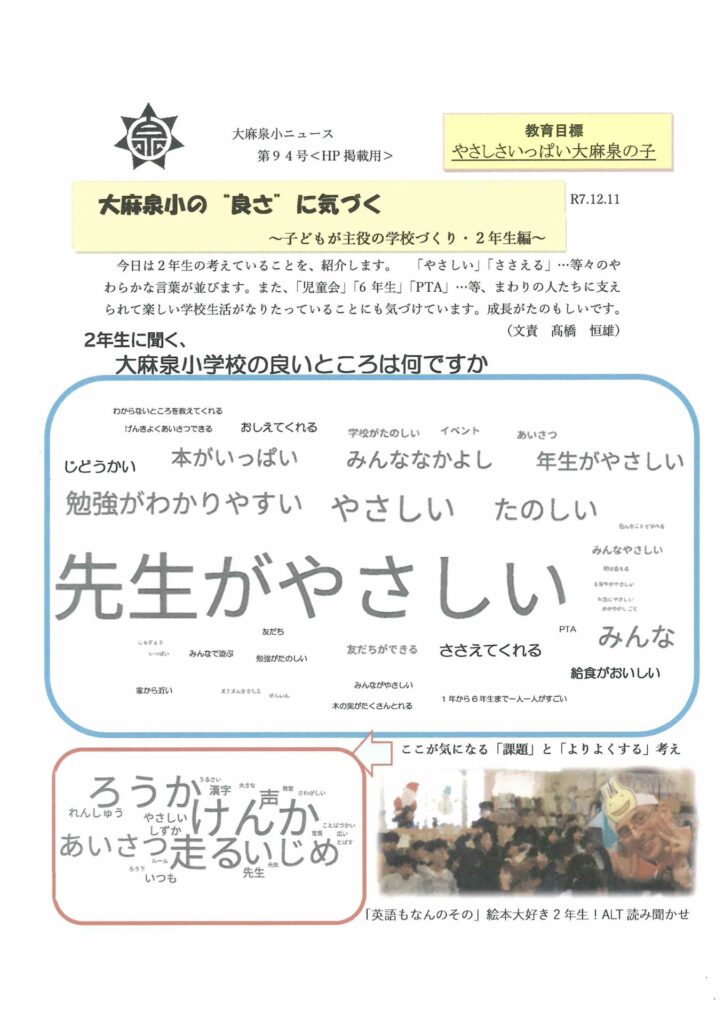 大麻泉小ニュース
第94号<HP掲載用>
教育目標
やさしさいっぱい大麻泉の子
大麻泉小の“良さ”に気づく
R7.12.11
~子どもが主役の学校づくり・2年生編~
今日は2年生の考えていることを、紹介します。 「やさしい」「ささえる」…等々のや
わらかな言葉が並びます。また、「児童会」「6年生」「PTA」…等、まわりの人たちに支え
られて楽しい学校生活がなりたっていることにも気づけています。成長がたのもしいです。
(文責 髙橋 恒雄)
2年生に聞く、
大麻泉小学校の良いところは何ですか
わからないところを教えてくれる
げんきよくあいさつできる
おしえてくれる
学校がたのしい
イベント
あいさつ
じどうかい
本がいっぱい
みんななかよし
年生がやさしい
勉強がわかりやすい
やさしい
たのしい
みんなやさしい
先生がやさしい
PTA
みんな
友だち
いっぱい
みんなで遊ぶ
勉強がたのしい
友だちができる
ささえてくれる
給食がおいしい
家から近い
みんながやさしい
木の実がたくさんとれる
1年から6年生まで一人一人がすごい
ここが気になる「課題」と「よりよくする」考え
ろうか
うるさい
漢字
大きな
声
教室
さわがしい
れんしゅう
やさしい
しずか
けんか
ことばづかい
広い
とばす
あいさつ
ルール
走る
いじめ
ろう下
いつも
先生
元気
「英語もなんのその」絵本大好き2年生!ALT読み聞かせ